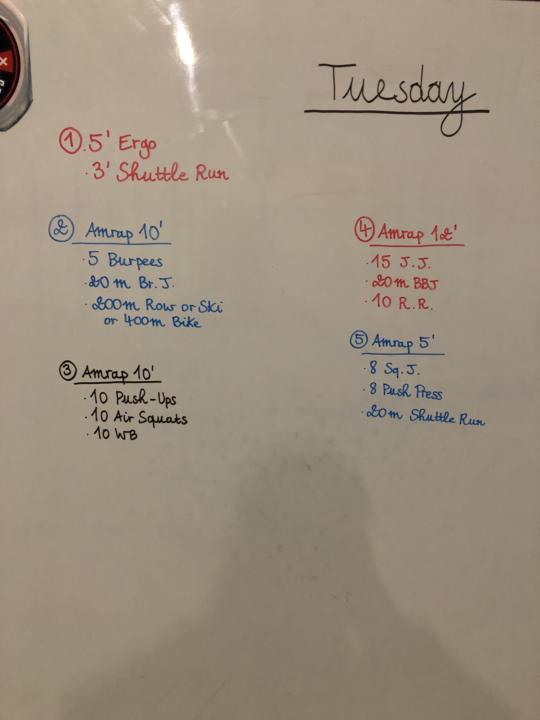 Tuesday
① . 5' Ergo
· 3' Shuttle Run
② Amrap 10'
· 5 Burpees
· 20 m Br. J.
· 200m Row or Ski
or 400m Bike
③ Amrap 10'
· 10 Push-Ups
· 10 Air Squats
· 10 WB
④ Amrap 12'
· 15 J.J.
· 20m BBJ
· 10 R.R.
⑤ Amrap 5'
· 8 Sq. J.
· 8 Push Press
· 20m Shuttle Run